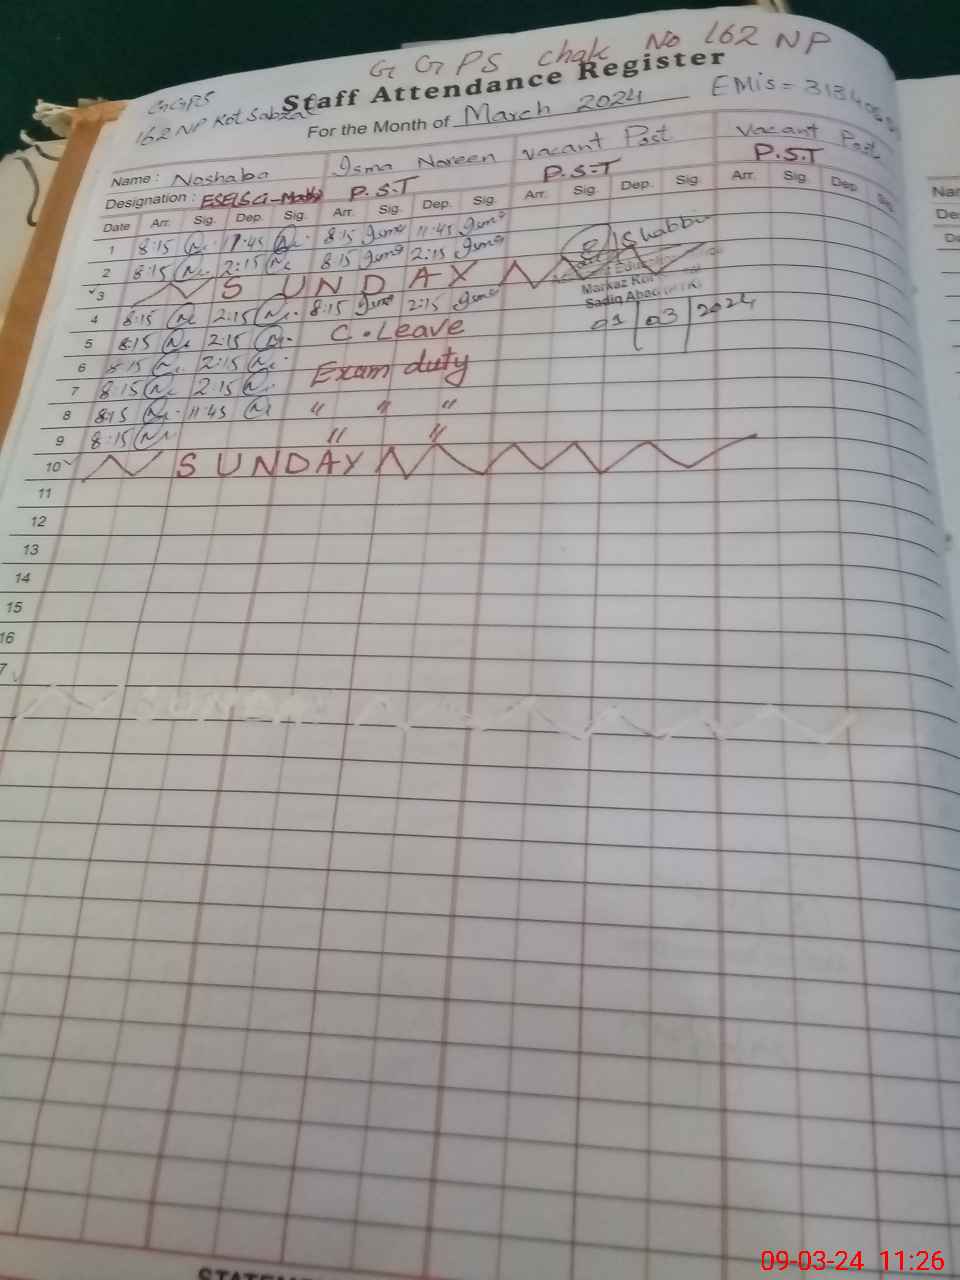 G GPS chak No 162 NP
Staff Attendance Register
GGPS
162 NP Kot Sabzal
For the Month of March 2024
EMis = 3134
Name : Noshaba Isma Noreen vacant Post vacant Post
Designation : ESE(Sci-Math) P.S.T P.S.T P.S.T
Date Arr. Sig. Dep. Sig. Arr. Sig. Dep. Sig. Arr. Sig. Dep. Sig. Arr. Sig. Dep. Sig.
1 8:15 11:45 8:15 Isma 11:45 Isma
2 8:15 2:15 8:15 Isma 2:15 Isma
3 SUNDAY
Markaz Kot
Sadiq Abad
01/03/2024
4 8:15 2:15 8:15 Isma 2:15 Isma
5 8:15 2:15 C.Leave
6 8:15 2:15
7 8:15 2:15 Exam duty
8 8:15 11:45 " " "
9 8:15 " "
10 SUNDAY
11
12
13
14
15
16
7
Nar
De
STATEM
09-03-24 11:26